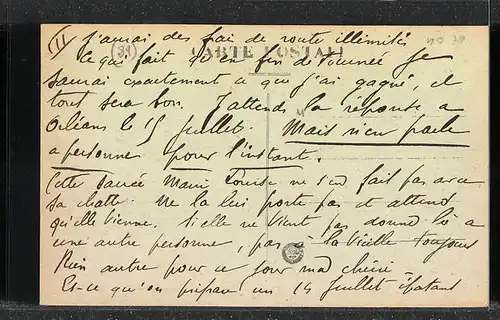 (11 J'aurai des frai de route illimités
(31) CARTE POSTALE
Ce qui fait qu'en fin de tournée je
saurai exactement ce que j'ai gagné, et
tout sera bon. J'attends la réponse a
Orléans le 15 Juillet. Mais rien parle
a personne pour l'instant.
Cette sacrée Marie Louise ne s'en fait pas avec
sa chatte. Ne la lui porte pas et attend
qu'elle vienne. Si elle ne vient pas donne la a
une autre personne, pas à la vieille toujours
Rien autre pour ce jour ma chérie
Est-ce qu'on prépare un 14 Juillet épatant